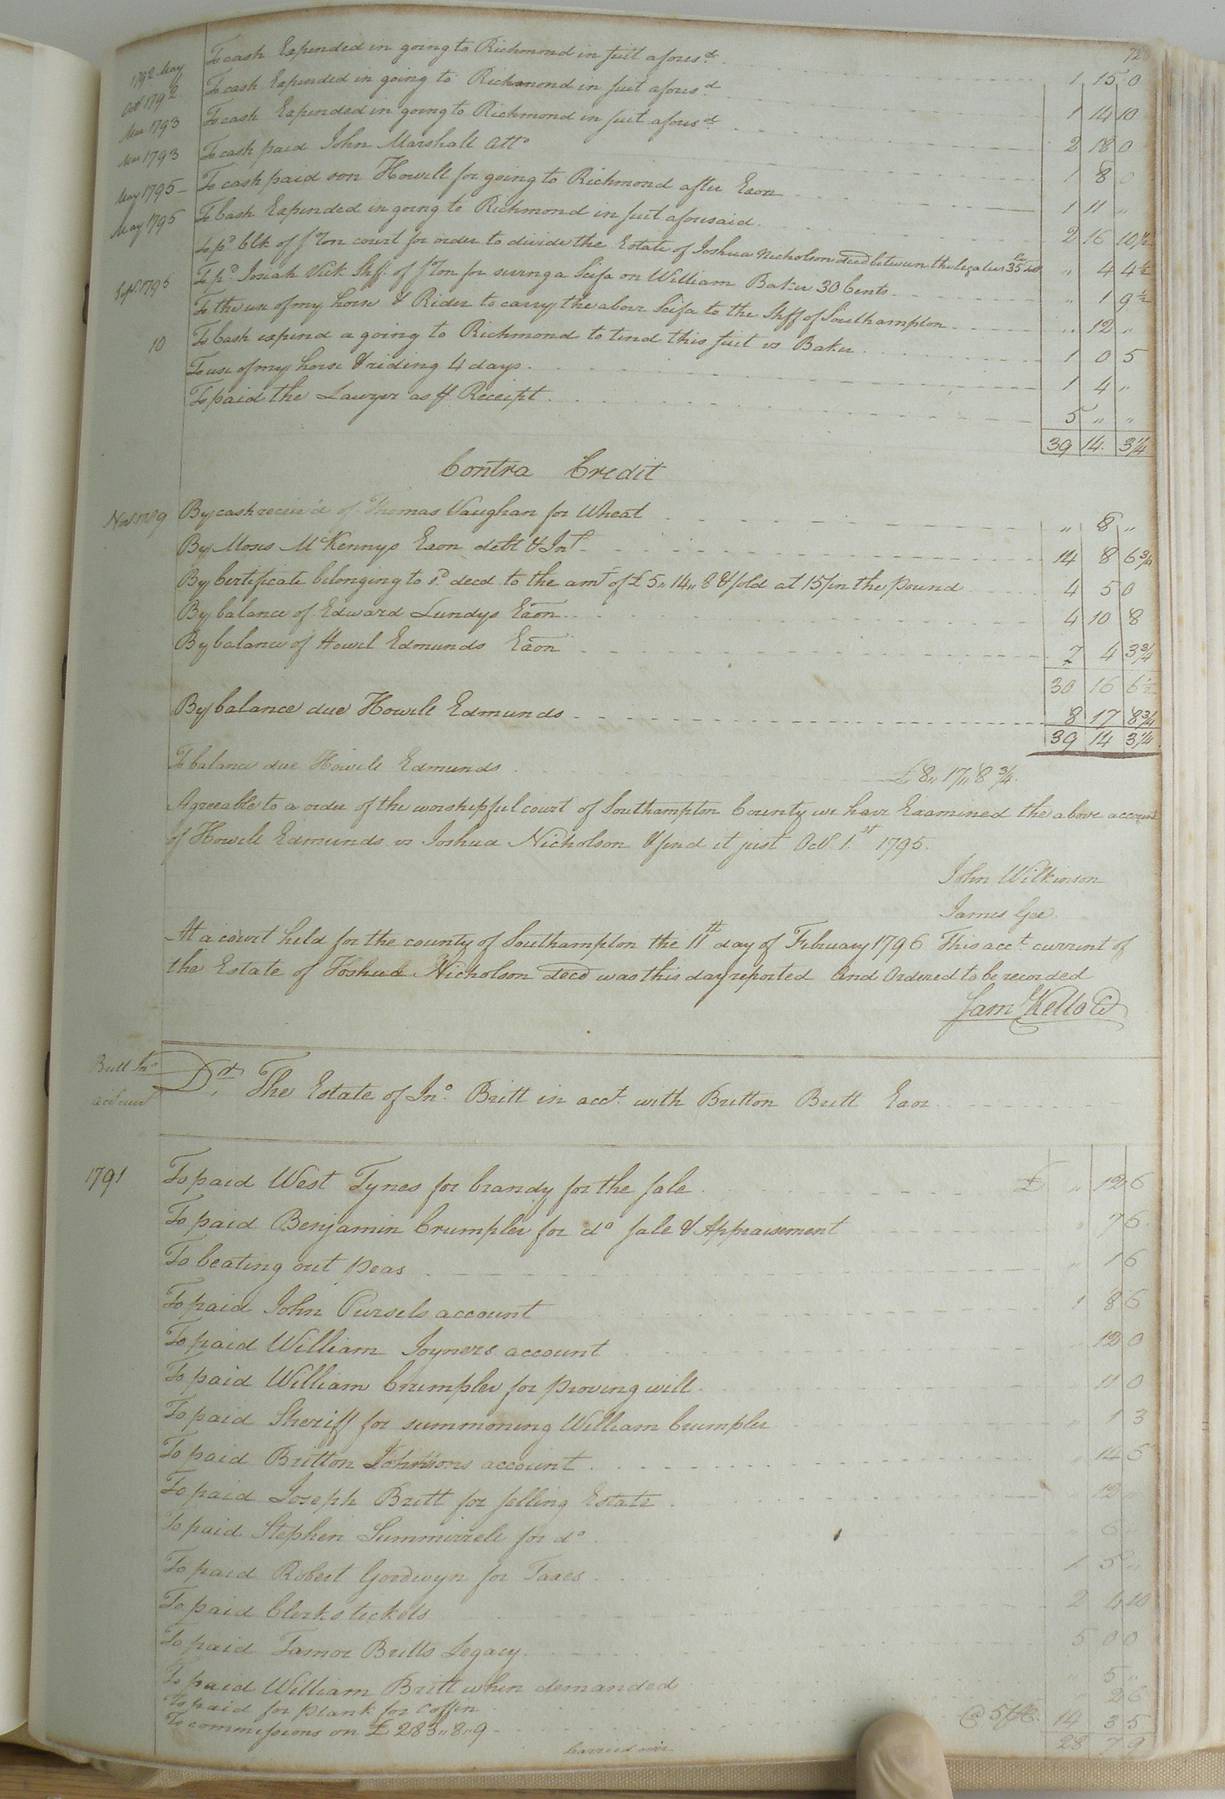 72
1792 May To cash Expended in going to Richmond in suit afores.d 1 15 0
Oct 1792 To cash Expended in going to Richmond in suit afores.d 1 14 10
Mar 1793 To cash Expended in going to Richmond in suit afores.d 2 18 0
Nov 1793 To cash paid John Marshall Atto 1 8 0
May 1795 To cash paid son Howell for going to Richmond after Exon 1 11 "
May 1795 To Cash Expended in going to Richmond in suit aforesaid 2 16 10 1/2
To pd Clk of S'Ton court for order to divide the Estate of Joshua Nicholson decd between the legatees " 4 4 1/2
Sept 1795 To pd Josiah Vick Shff. of S'Ton for serving a Scifa on William Baker 30 Cents " 1 9 1/2
To the use of my horse & Rider to carry the above Scifa to the Shff of Southampton " 12 "
10 To Cash expend a going to Richmond to tend this suit vs Baker 1 0 5
To use of my horse & riding 4 days 1 4 "
To paid the Lawyer as pr Receipt 5 " "
39 14 3 1/4
Contra Credit
Nov 1789 By cash receiv'd of Thomas Vaughan for Wheat " 8 "
By Moses McKennys Exon debt & Int. 14 8 6 3/4
By Certificate belonging to sd decd to the amt of £ 5 " 14 " 8 & sold at 15/ in the pound 4 5 0
By balance of Edward Lundys Exon 4 10 8
By balance of Howel Edmunds Exon 7 4 3 3/4
30 16 6 1/2
By balance due Howell Edmunds 8 17 8 3/4
39 14 3 1/4
To balance due Howell Edmunds £ 8 " 17 " 8 3/4
Agreeable to a order of the worshipful court of Southampton County we have Examined the above account
of Howell Edmunds vs Joshua Nicholson & find it just Oct. 1st 1795.
John Wilkinson
James Gee
At a court held for the county of Southampton the 11th day of February 1796 This acct. current of
the Estate of Joshua Nicholson decd was this day reported and Ordered to be recorded
Saml Kello Ck
Britt Jno Dr. The Estate of Jno. Britt in acct. with Britton Britt Exor
acct curt
1791 To paid West Tynes for brandy for the sale £ " 12 6
To paid Benjamin Crumpler for do sale & Appraisement " 7 6
To beating out peas " 1 6
To paid John Pursels account 1 8 6
To paid William Joyners account " 12 0
To paid William Crumpler for proving will 11 0
To paid Sheriff for summoning William Crumpler " 1 3
To paid Britton Johnsons account " 14 5
To paid Joseph Britt for selling Estate " 12 "
To paid Stephen Summerrell for do " 6
To paid Robert Goodwyn for Taxes 1 5 "
To paid Clerks tickets 2 4 10
To paid Tamor Britts Legacy 5 0 0
To paid William Britt when demanded " 5 "
To paid for plank for Coffin " 2 6
To commissions on £ 283 " 8 " 9 @ 5 pCt. 14 3 5
carried over 28 7 9